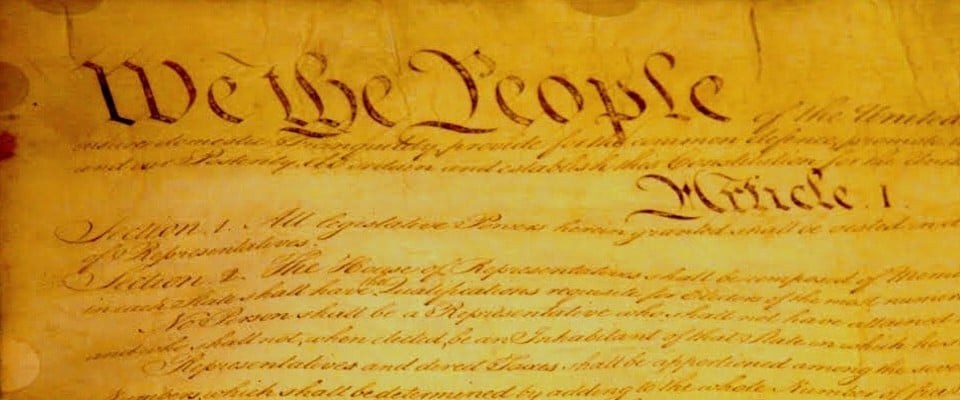 We the People of the United
insure domestic Tranquility, provide for the common defence, promote
and our Posterity, do ordain and establish this Constitution for the
Article. I.
Section. 1. All legislative Powers herein granted shall be vested in
of Representatives.
Section. 2. The House of Representatives shall be composed of Mem
in each State shall have the Qualifications requisite for Electors of the most numer
No Person shall be a Representative who shall not have attained
and who shall not, when elected, be an Inhabitant of that State in which he s
Representatives and direct Taxes shall be apportioned among the seve
Numbers, which shall be determined by adding to the whole Number of free